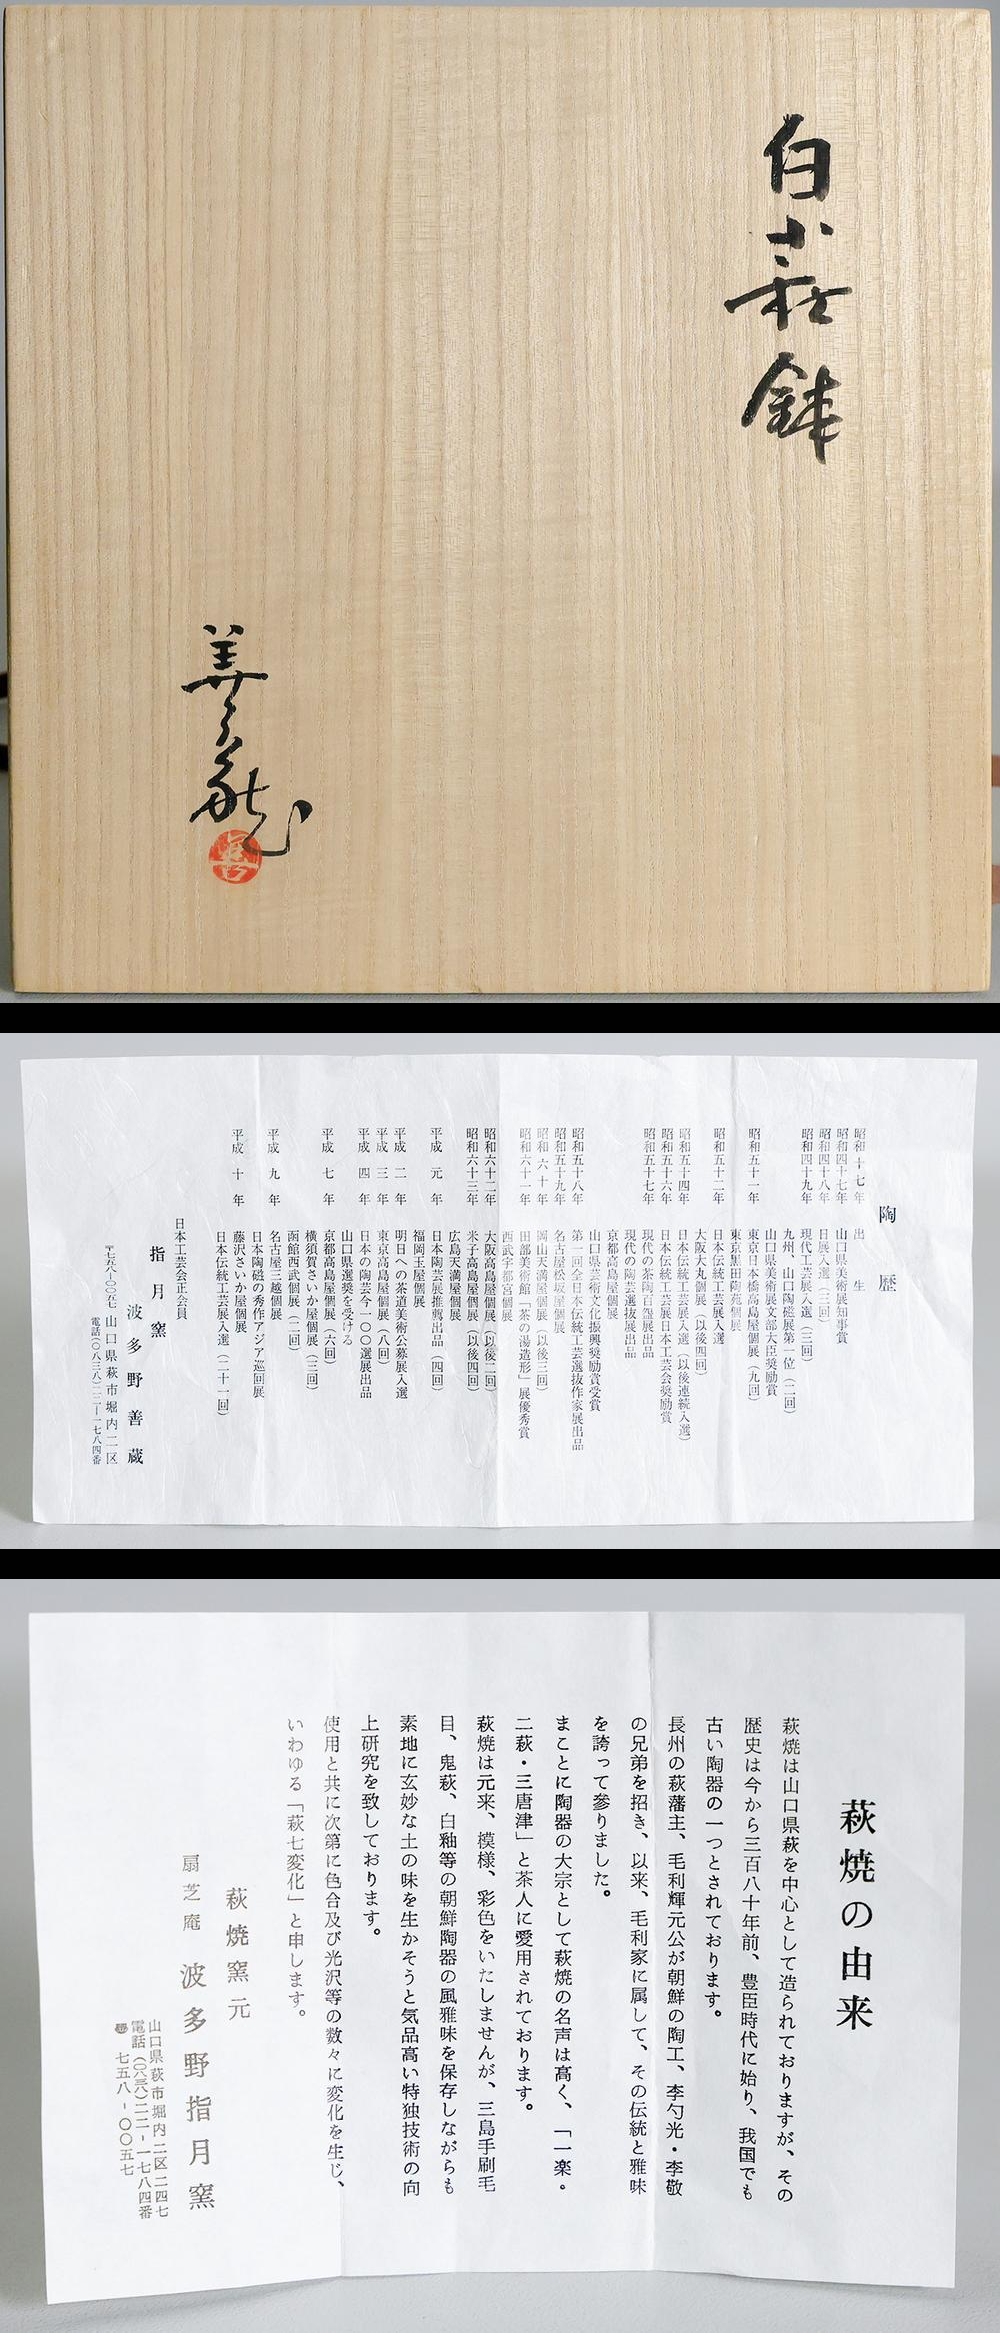 白萩鉢
善蔵
陶歴
昭和十七年 出生
昭和四十七年 山口県美術展知事賞
昭和四十八年 日展入選（三回）
昭和四十九年 現代工芸展入選（三回）
九州、山口陶磁展第一位（二回）
山口県美術展文部大臣奨励賞
昭和五十一年 東京日本橋高島屋個展（九回）
東京黒田陶苑個展
昭和五十二年 日本伝統工芸展入選
大阪大丸個展（以後四回）
昭和五十四年 日本伝統工芸展入選（以後連続入選）
昭和五十六年 日本伝統工芸展日本工芸会奨励賞
昭和五十七年 現代の茶陶百盌展出品
現代の陶芸選抜展出品
京都高島屋個展
山口県芸術文化振興奨励賞受賞
昭和五十八年 第一回全日本伝統工芸選抜作家展出品
昭和五十九年 名古屋松坂屋個展
昭和六十年 岡山天満屋個展（以後三回）
昭和六十一年 田部美術館「茶の湯造形」展優秀賞
西武宇都宮個展
昭和六十二年 大阪高島屋個展（以後二回）
昭和六十三年 米子高島屋個展（以後四回）
広島天満屋個展
平成元年 日本陶芸展推薦出品（四回）
福岡玉屋個展
平成二年 明日への茶道美術公募展入選
平成三年 東京高島屋個展（八回）
平成四年 日本の陶芸今一〇〇選展出品
山口県選奨を受ける
平成七年 京都高島屋個展（六回）
横須賀さいか屋個展（三回）
函館西武個展（二回）
平成九年 名古屋三越個展
日本陶磁の秀作アジア巡回展
平成十年 藤沢さいか屋個展
日本伝統工芸展入選（二十一回）
日本工芸会正会員
指月窯
波多野善蔵
〒七五八-〇〇五七 山口県萩市堀内二区
電話（〇八三八）二二-一七八四番
萩焼の由来
萩焼は山口県萩を中心として造られておりますが、その
歴史は今から三百八十年前、豊臣時代に始り、我国でも
古い陶器の一つとされております。
長州の萩藩主、毛利輝元公が朝鮮の陶工、李勺光・李敬
の兄弟を招き、以来、毛利家に属して、その伝統と雅味
を誇って参りました。
まことに陶器の大宗として萩焼の名声は高く、「一楽・
二萩・三唐津」と茶人に愛用されております。
萩焼は元来、模様、彩色をいたしませんが、三島手刷毛
目、鬼萩、白釉等の朝鮮陶器の風雅味を保存しながらも
素地に玄妙な土の味を生かそうと気品高い特独技術の向
上研究を致しております。
使用と共に次第に色合及び光沢等の数々に変化を生じ、
いわゆる「萩七変化」と申します。
萩焼窯元
扇芝庵 波多野指月窯
山口県萩市堀内二区二四七
電話（〇八三八）二二-一七八四番
七五八-〇〇五七